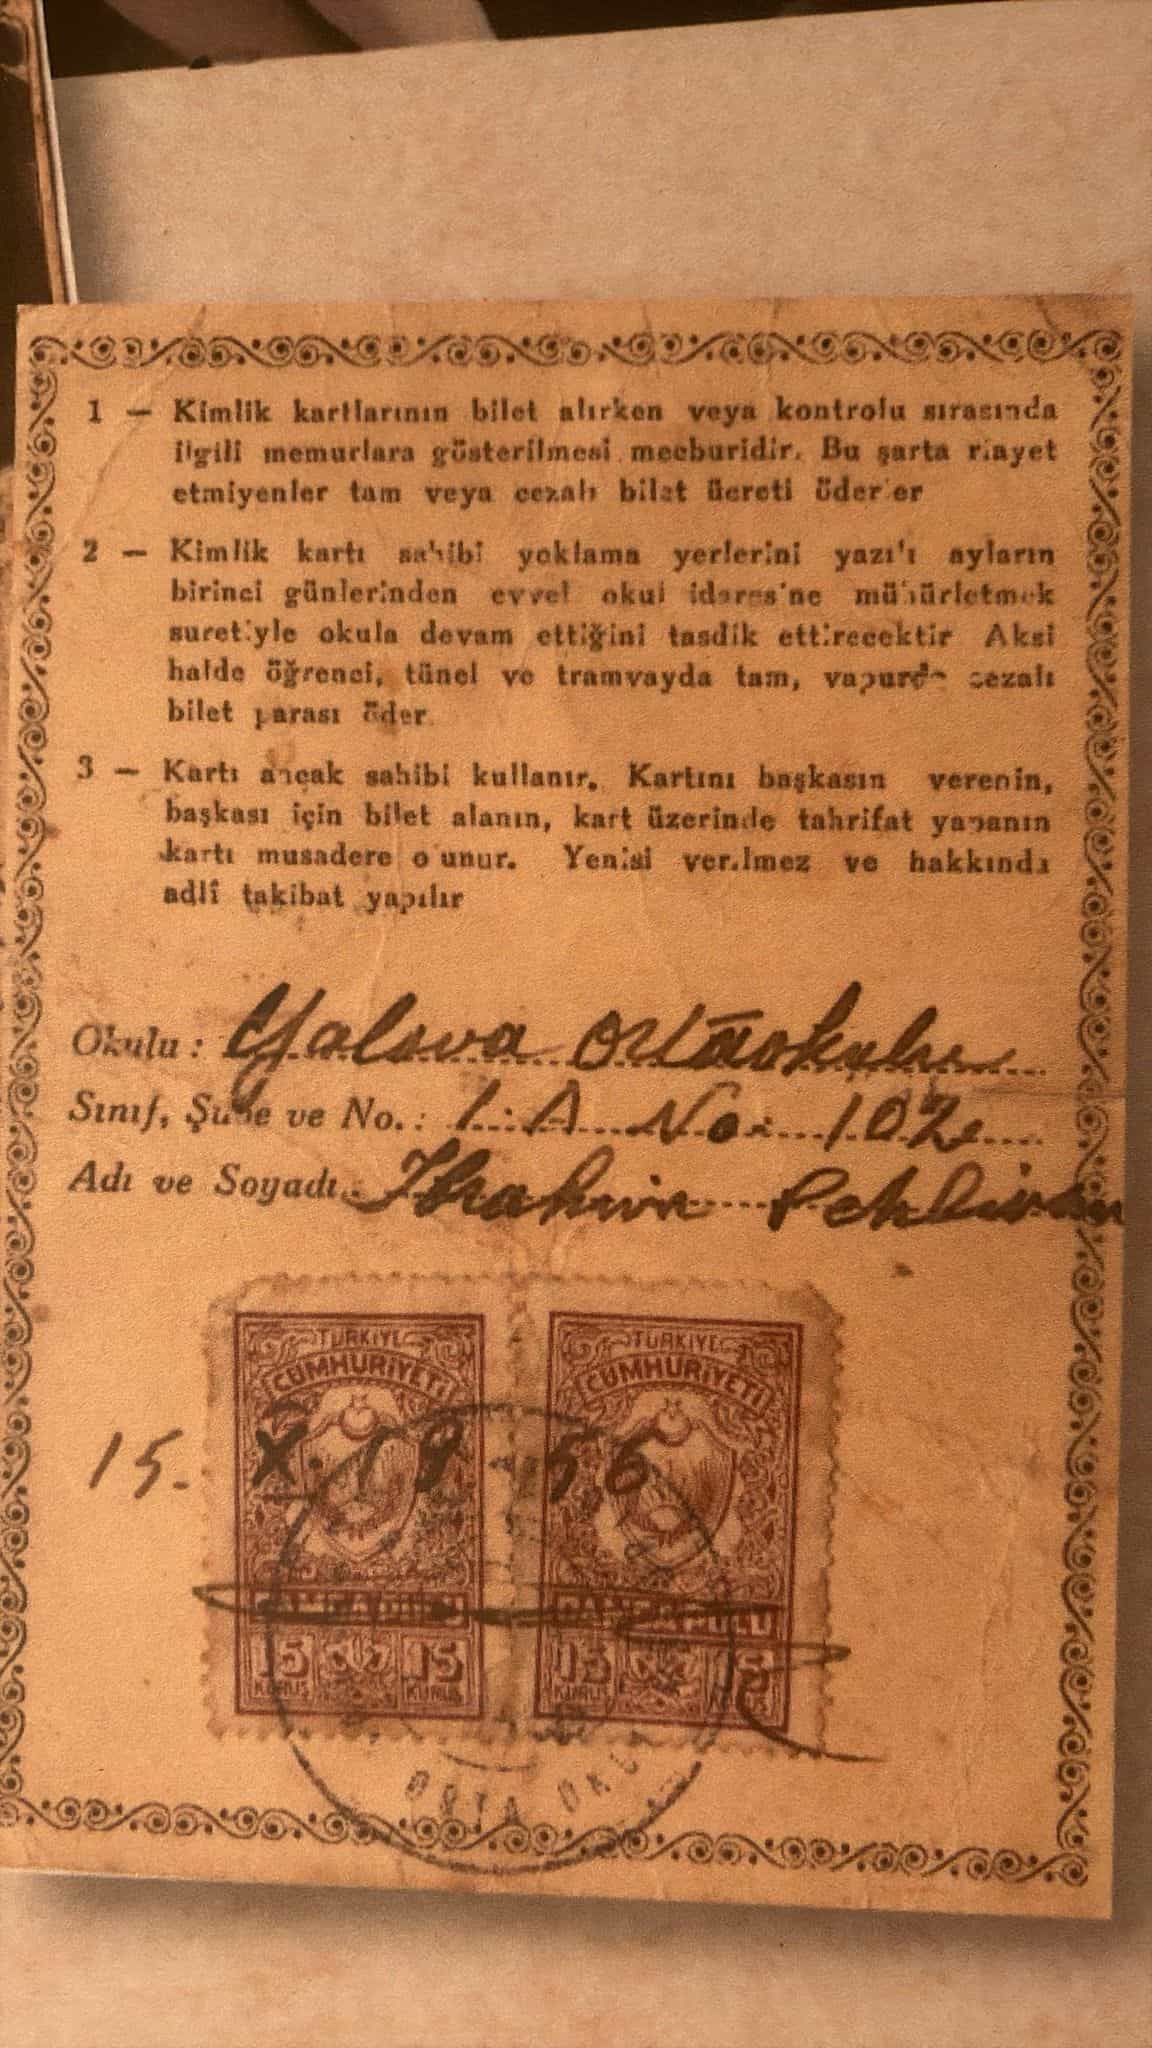 1 — Kimlik kartlarının bilet alırken veya kontrolu sırasında
ilgili memurlara gösterilmesi mecburidir. Bu şarta riayet
etmiyenler tam veya cezalı bilet ücreti öderler
2 — Kimlik kartı sahibi yoklama yerlerini yazılı ayların
birinci günlerinden evvel okul idaresine mühürletmek
suretiyle okula devam ettiğini tasdik ettirecektir Aksi
halde öğrenci, tünel ve tramvayda tam, vapurda cezalı
bilet parası öder.
3 — Kartı ancak sahibi kullanır. Kartını başkasın verenin,
başkası için bilet alanın, kart üzerinde tahrifat yapanın
kartı musadere olunur. Yenisi verilmez ve hakkında
adlî takibat yapılır
Okulu: Yalova Ortaokulu
Sınıf, Şube ve No.: 1.A No: 102
Adı ve Soyadı: İbrahim Pehlivan
TÜRKİYE TÜRKİYE
CÜMHURİYETİ CÜMHURİYETİ
15. X. 19 56
DAMGA PULU DAMGA PULU
15 15 15 15
KURUŞ KURUŞ KURUŞ
ORTA OKUL